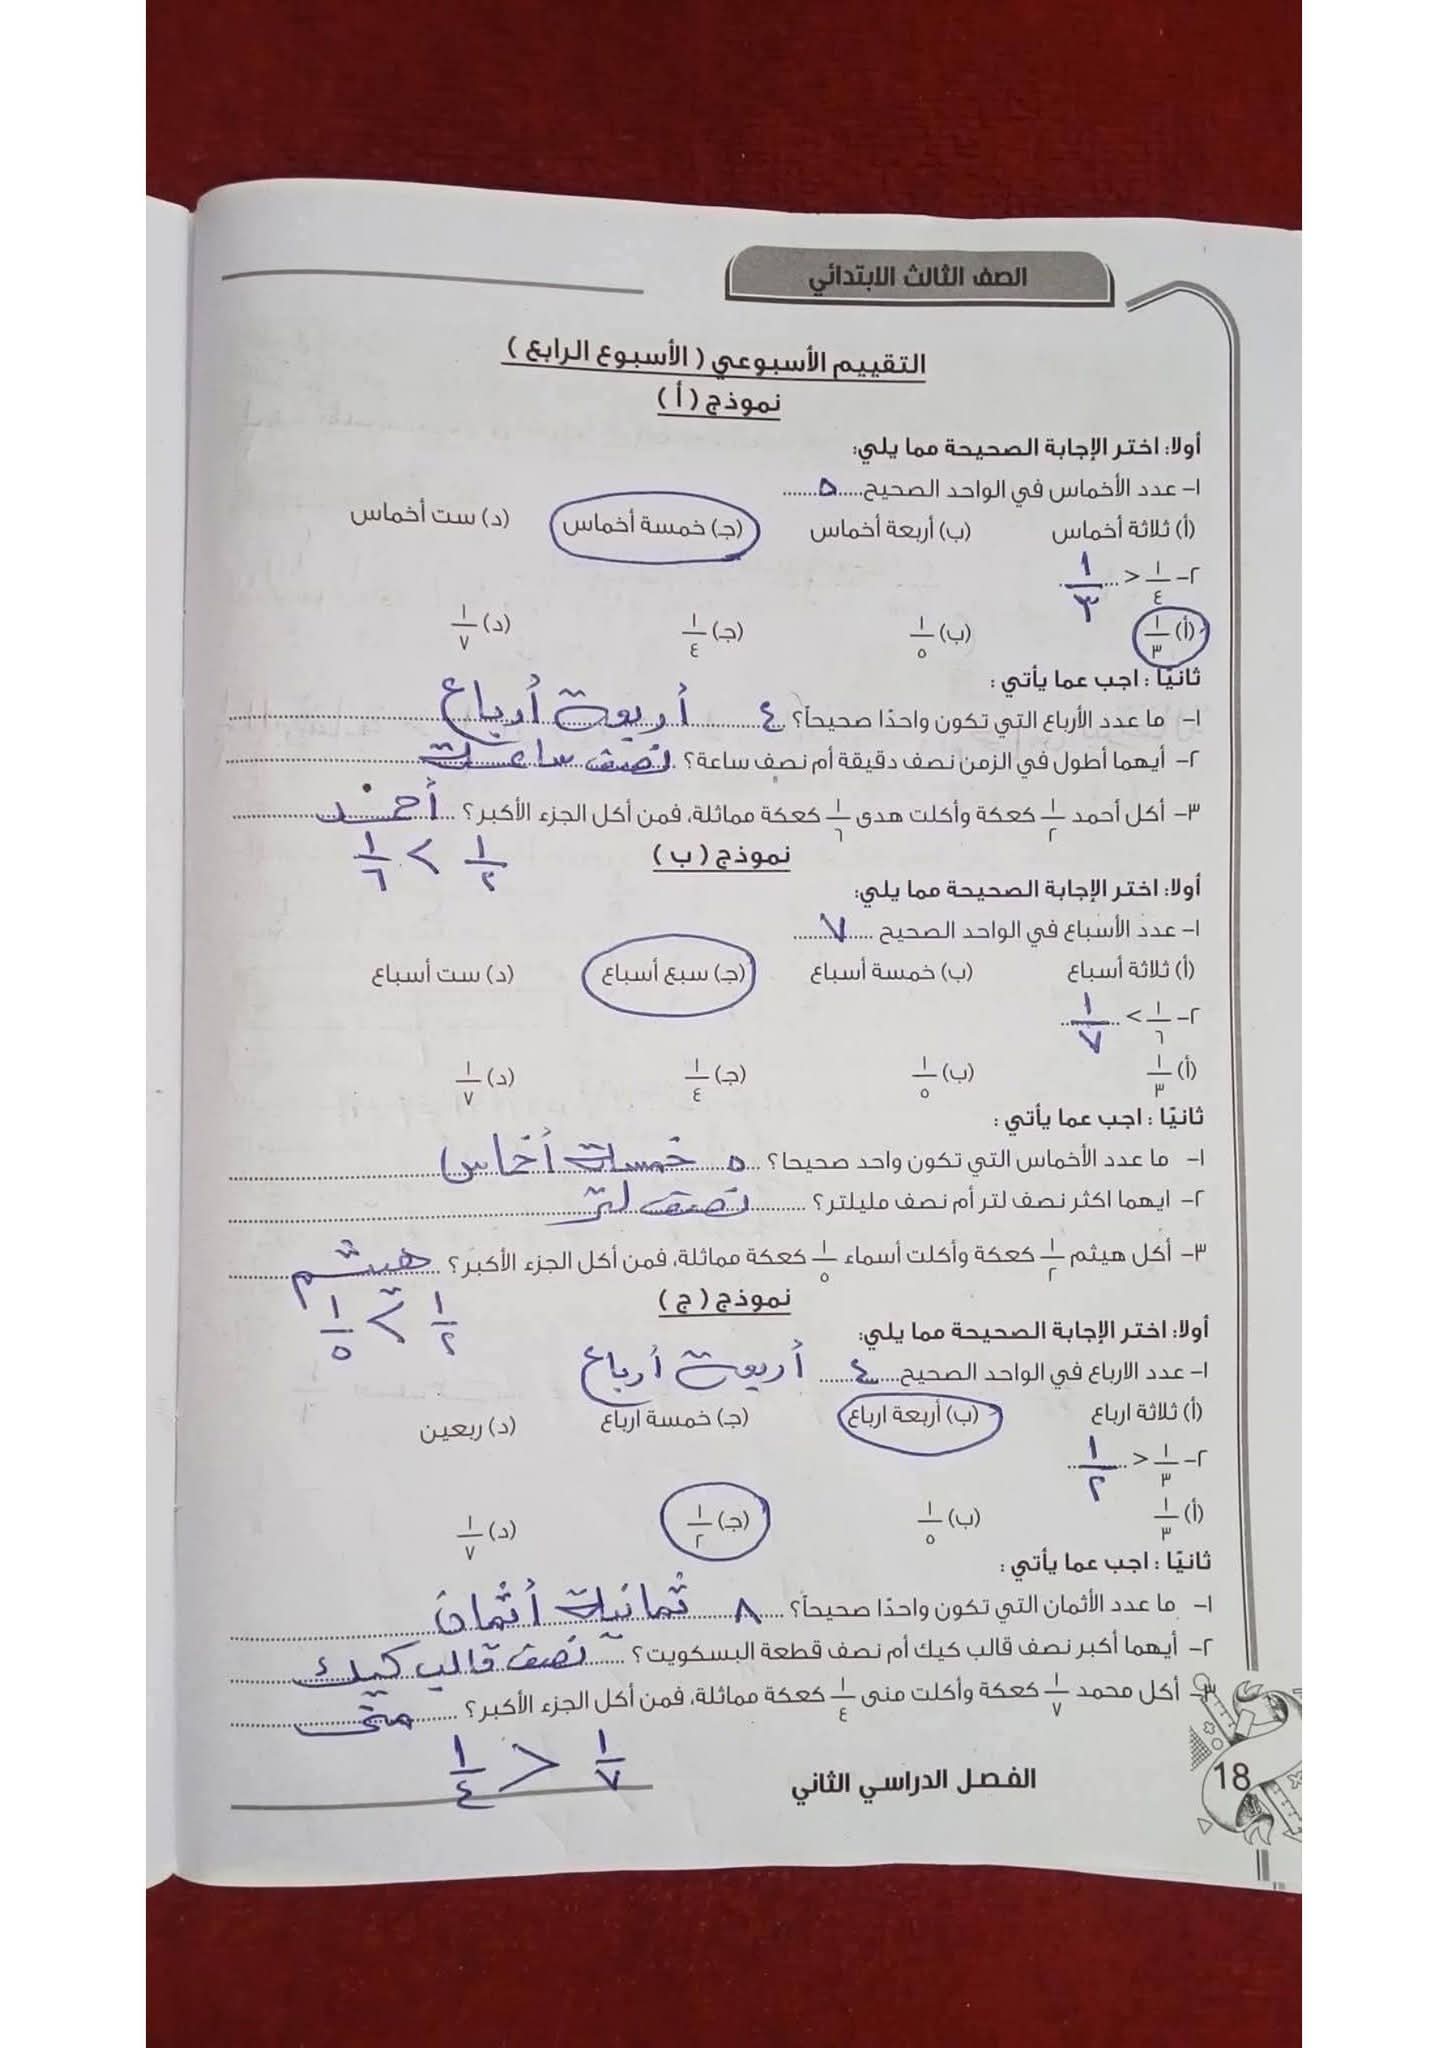 الصف الثالث الابتدائي
التقييم الأسبوعي ( الأسبوع الرابع )
نموذج ( أ )
أولا: اختر الإجابة الصحيحة مما يلي:
١- عدد الأخماس في الواحد الصحيح.....٥......
(أ) ثلاثة أخماس (ب) أربعة أخماس (جـ) خمسة أخماس (د) ست أخماس
٢- ١/٤ < ١/٣
(أ) ١/٣ (ب) ١/٥ (جـ) ١/٤ (د) ١/٧
ثانيًا : اجب عما يأتي :
١- ما عدد الأرباع التي تكون واحدًا صحيحاً؟ ٤ أربعة أرباع
٢- أيهما أطول في الزمن نصف دقيقة أم نصف ساعة؟ نصف ساعة
٣- أكل أحمد ١/٢ كعكة وأكلت هدى ١/٦ كعكة مماثلة، فمن أكل الجزء الأكبر؟ أحمد
١/٢ > ١/٦
نموذج ( ب )
أولا: اختر الإجابة الصحيحة مما يلي:
١- عدد الأسباع في الواحد الصحيح ....٧....
(أ) ثلاثة أسباع (ب) خمسة أسباع (جـ) سبع أسباع (د) ست أسباع
٢- ١/٦ > ١/٧
(أ) ١/٣ (ب) ١/٥ (جـ) ١/٤ (د) ١/٧
ثانيًا : اجب عما يأتي :
١- ما عدد الأخماس التي تكون واحد صحيحا؟ ٥ خمسة أخماس
٢- ايهما اكثر نصف لتر أم نصف مليلتر؟ نصف لتر
٣- أكل هيثم ١/٢ كعكة وأكلت أسماء ١/٥ كعكة مماثلة، فمن أكل الجزء الأكبر؟ هيثم
١/٢ > ١/٥
نموذج ( ج )
أولا: اختر الإجابة الصحيحة مما يلي:
١- عدد الارباع في الواحد الصحيح....٤.... أربعة أرباع
(أ) ثلاثة ارباع (ب) أربعة ارباع (جـ) خمسة ارباع (د) ربعين
٢- ١/٣ < ١/٢
(أ) ١/٣ (ب) ١/٥ (جـ) ١/٢ (د) ١/٧
ثانيًا : اجب عما يأتي :
١- ما عدد الأثمان التي تكون واحدًا صحيحاً؟ ٨ ثمانية أثمان
٢- أيهما أكبر نصف قالب كيك أم نصف قطعة البسكويت؟ نصف قالب كيك
٣- أكل محمد ١/٧ كعكة وأكلت منى ١/٤ كعكة مماثلة، فمن أكل الجزء الأكبر؟ منى
١/٧ < ١/٤
الفصل الدراسي الثاني
18